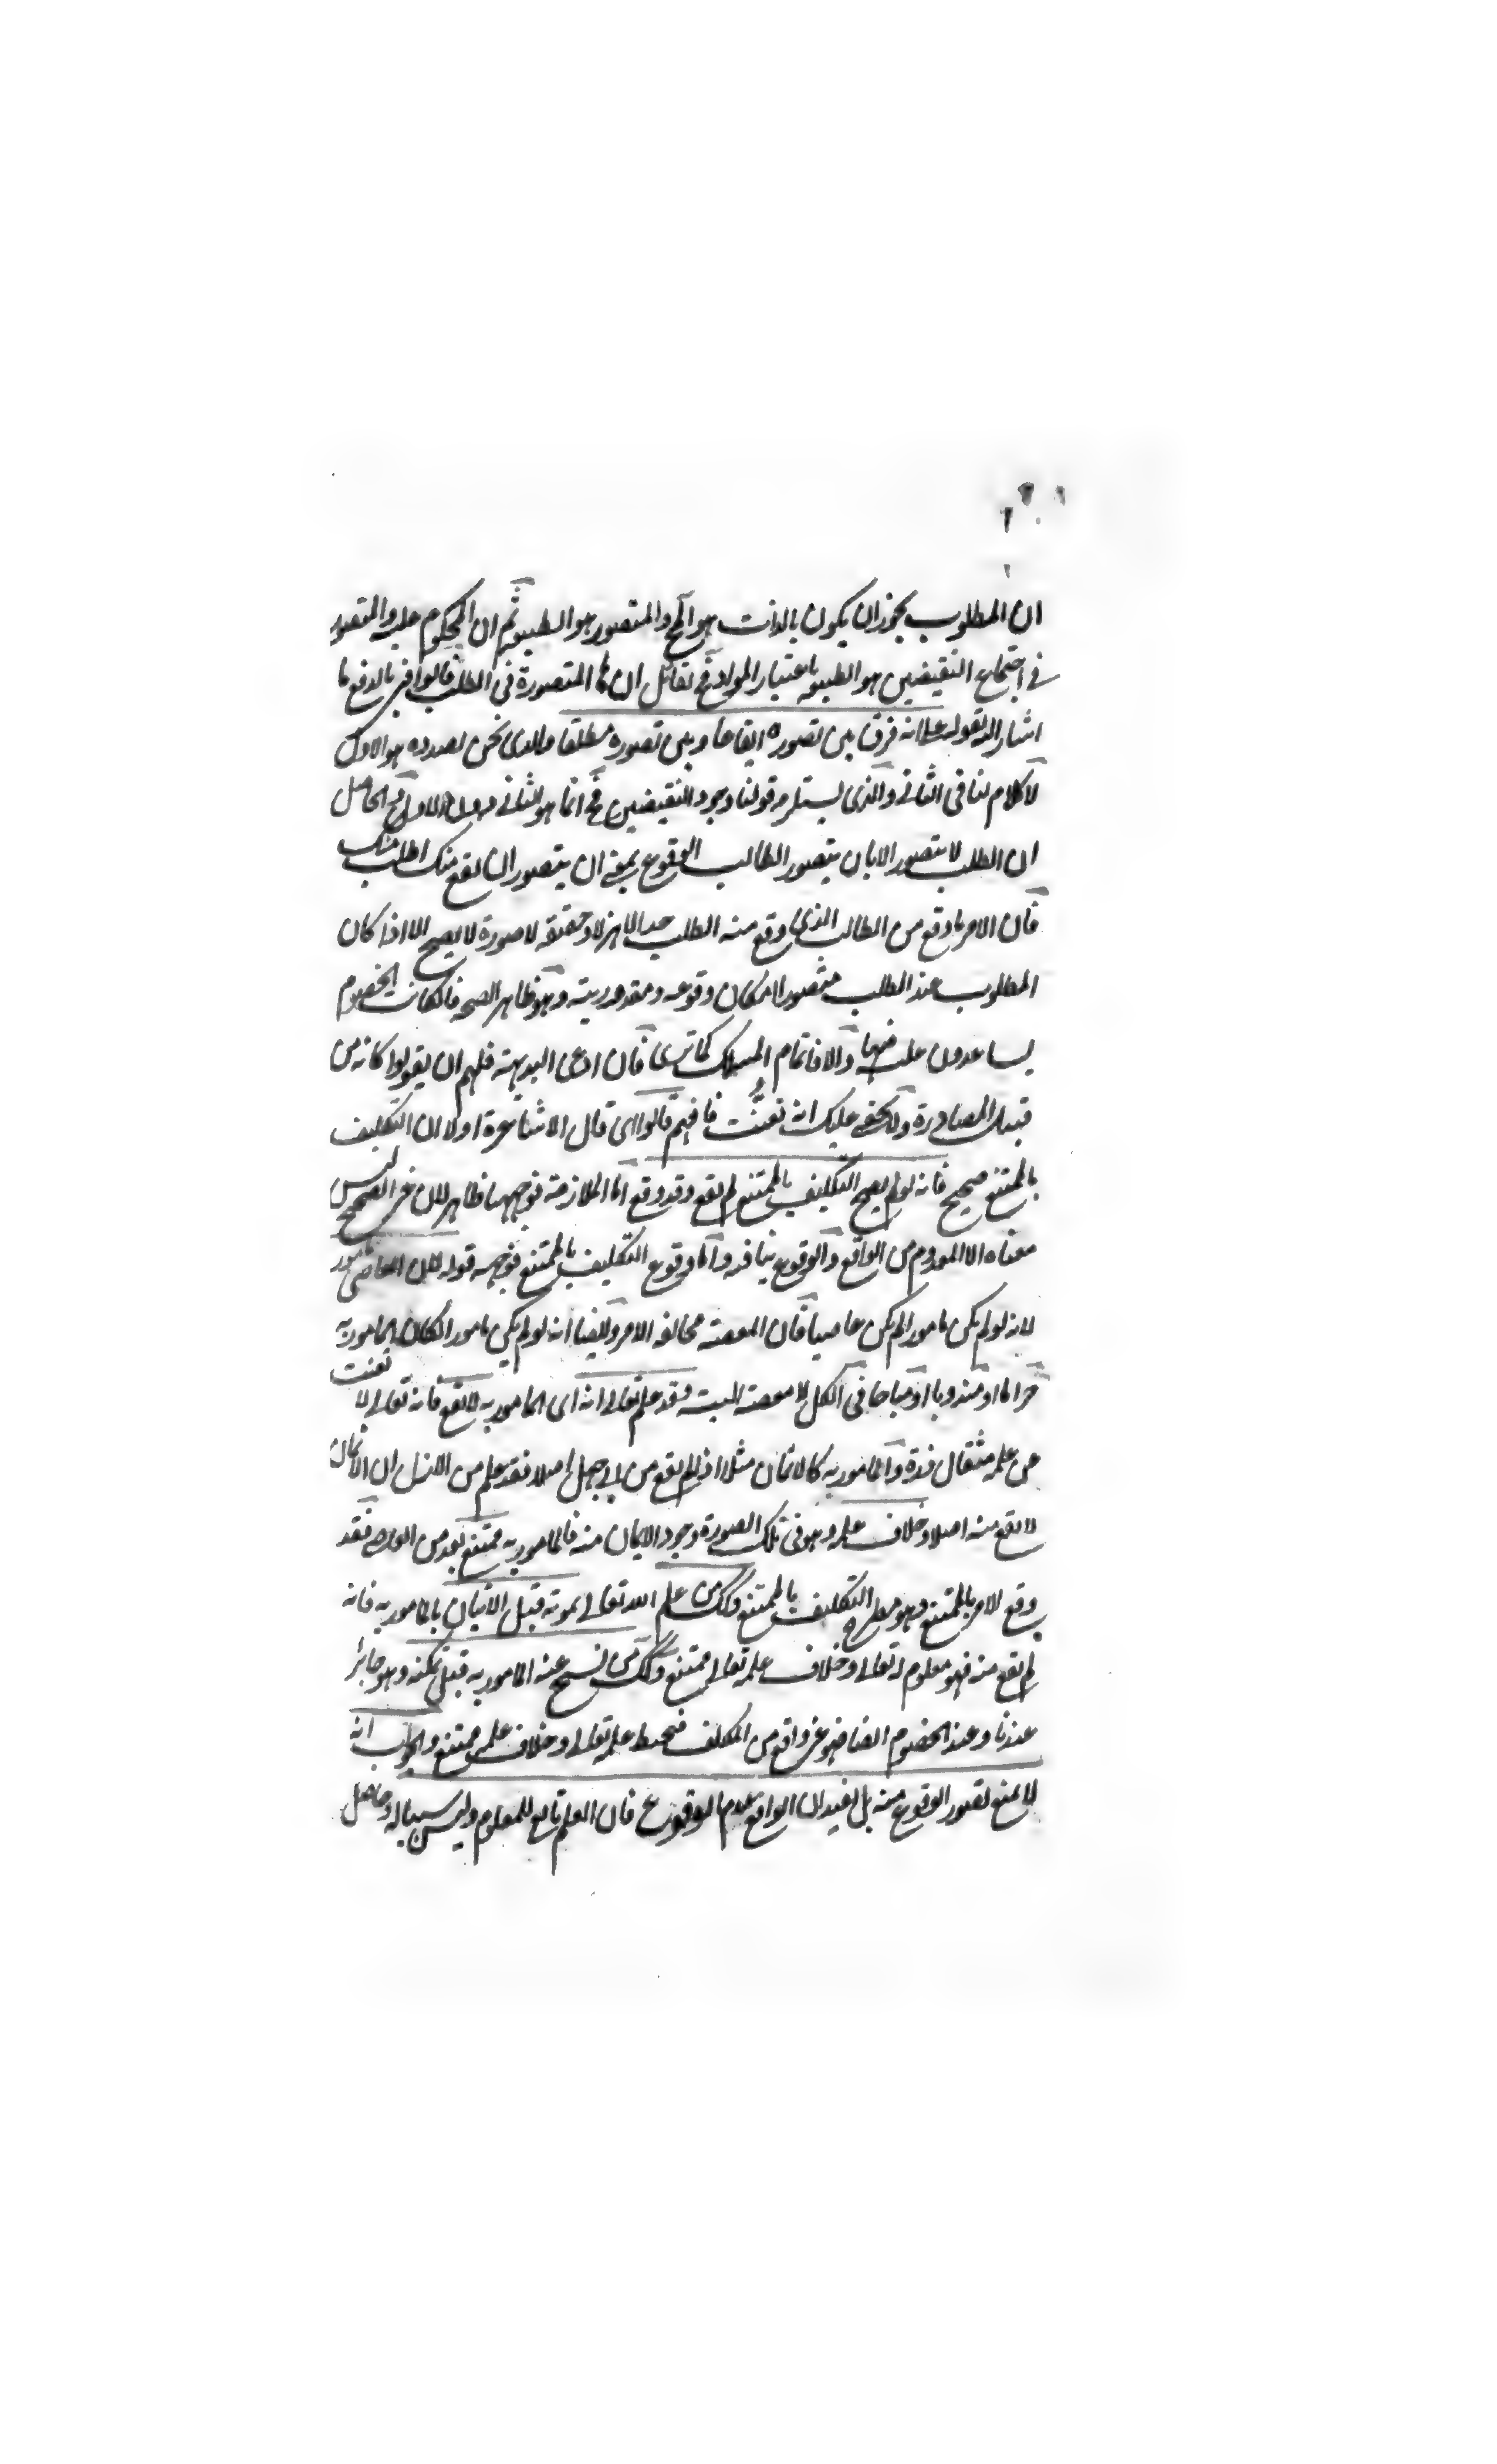 ان المطلوب يجوز ان يكون بالذات هو المح والمتصور هو الطبيعة ثم ان المحكوم عليه والمتصور
في اجتماع النقيضين هو الطبيعة باعتبار المواد فح لقائل ان المتصورة في الطلب فالوا في بالدفع ما
اشار اليه بقوله على انه فرق بين تصوره ايقاعا وبين تصوره مطلقا والذي نحن بصدده هو الاول
لا كلام لنا في الثاني والذي يستلزمه قولنا وجود النقيضين مح انما هو الثاني دون الاول والحاصل
ان الطلب لا يتصور الا بان يتصور الطالب الوقوع بمعنى ان يتصور ان يقع منك اطلب منك
فان الامر ما وقع من الطالب الذي وقع منه الطلب جدا لا هزلا وحقيقة لا صورة لا يصح الا اذا كان
المطلوب عند الطلب متصورا امكان وقوعه ومقدوريته وهو ظاهر الصحة فان كانت الخصوم
يساعدون عليه فبها والا فاتمام المسلك كما ترى فان ادعى البديهة فلهم ان يقولوا كانه من
قبيل المصادرة ولا يخفى عليك انه تعنت فافهم قالوا اى قال الاشاعرة اولا ان التكليف
بالممتنع صحيح فانه لو لم يصح التكليف بالممتنع لم يقع وقد وقع اما الملازمة فوجهها ظاهر لان غير الصحيح ليس
معناه الا المعدوم من الواقع والوقوع ينافيه واما وقوع التكليف بالممتنع فوجهه قوله لان العاصي مامور
لانه لو لم يكن مامورا لم يكن عاصيا فان المعصية مخالفة الامر وايضا انه لو لم يكن مامورا لكان المامور به
حراما او مندوبا او مباحا ففي الكل لا معصية البتة وقد علم تعالى انه اى المامور به لا يقع فانه تعالى لا
عن علمه مثقال ذرة والمامور به كالايمان مثلا اذا لم يقع من ابي جهل اصلا فقد علم من الازل ان الايمان
لا يقع منه اصلا وخلاف علمه وهو في تلك الصورة وجود الايمان منه فالمامور به ممتنع بعد من العاصي فقد
وقع الامر بالممتنع وهو معنى التكليف بالممتنع وكك من علم الله تعالى بموته قبل الاتيان بالمامور به فانه
لم يقع منه فهو معلوم له تعالى وخلاف علمه تعالى ممتنع وكك من نسخ عنه المامور به قبل تمكنه وهو جائز
عندنا وعند الخصوم ايضا فهو غير واقع من المكلف فيحيط علمه تعالى وخلاف علمه ممتنع والجواب انه
لا يمنع تصور الوقوع منه بل يفيد ان الواقع عدم الوقوع فان العلم تابع للمعلوم وليس سببا له وحاصل